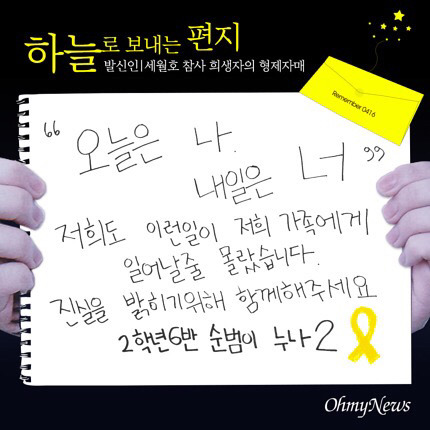 하늘로 보내는 편지
발신인|세월호 참사 희생자의 형제자매
Remember 0416
“오늘은 나.
내일은 너”
저희도 이런일이 저희 가족에게
일어날줄 몰랐습니다.
진실을 밝히기위해 함께해주세요
2학년6반 순범이 누나2
OhmyNews